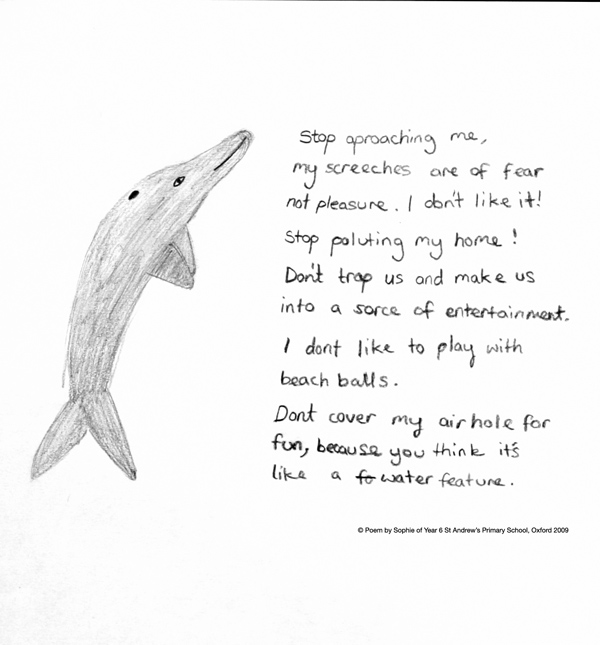 Stop aproaching me,
my screeches are of fear
not pleasure. I don't like it!
Stop poluting my home!
Don't trap us and make us
into a sorce of entertainment.
I dont like to play with
beach balls.
Dont cover my airhole for
fun, because you think it's
like a fo water feature.
© Poem by Sophie of Year 6 St Andrew's Primary School, Oxford 2009